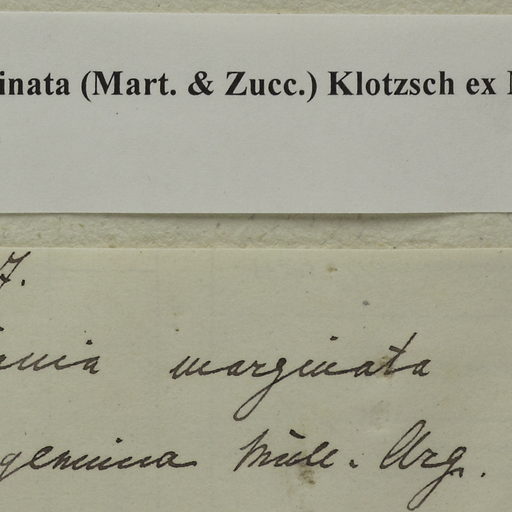 inata (Mart. & Zucc.) Klotzsch ex
7.
ania marginata
genuina Müll. Arg.